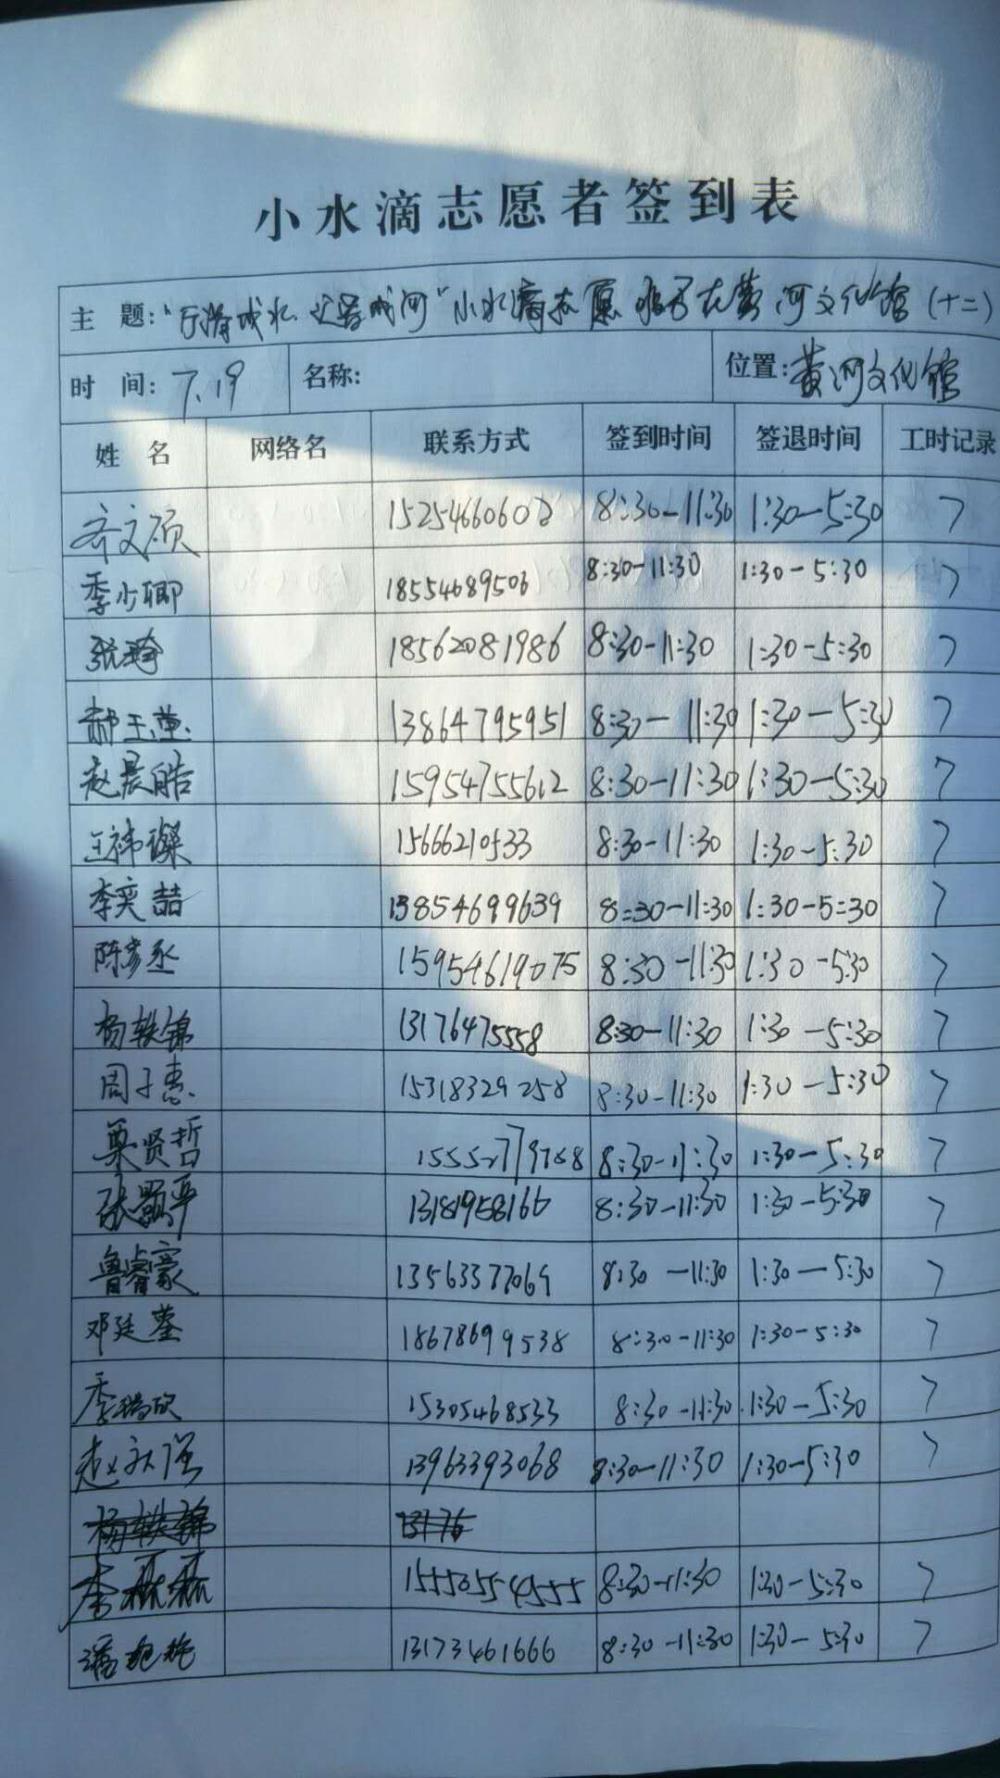 小水滴志愿者签到表
主 题: 小水滴志愿 在黄河文化馆(十二)
时 间: 7.19 名称: 位置: 黄河文化馆
姓 名 网络名 联系方式 签到时间 签退时间 工时记录
齐文硕 8:30-11:30 1:30-5:30 7
季少卿 18554689506 8:30-11:30 1:30-5:30 7
张 18562081986 8:30-11:30 1:30-5:30 7
郝玉莲 13864795951 8:30-11:30 1:30-5:30 7
赵晨皓 15954755612 8:30-11:30 1:30-5:30 7
王祎璨 15666210533 8:30-11:30 1:30-5:30 7
李奕喆 13854699639 8:30-11:30 1:30-5:30 7
陈彦丞 15954619075 8:30-11:30 1:30-5:30 7
杨轶锦 13176475558 8:30-11:30 1:30-5:30 7
周子惠 15318329258 8:30-11:30 1:30-5:30 7
贤哲 8:30-11:30 1:30-5:30 7
张颢严 8:30-11:30 1:30-5:30 7
鲁睿豪 13563377069 8:30-11:30 1:30-5:30 7
邓廷鉴 18678699538 8:30-11:30 1:30-5:30 7
季瑞欣 15305468533 8:30-11:30 1:30-5:30 7
赵 强 13963393068 8:30-11:30 1:30-5:30 7
杨轶锦 13176
李 15550554555 8:30-11:30 1:30-5:30 7
13173461666 8:30-11:30 1:30-5:30 7